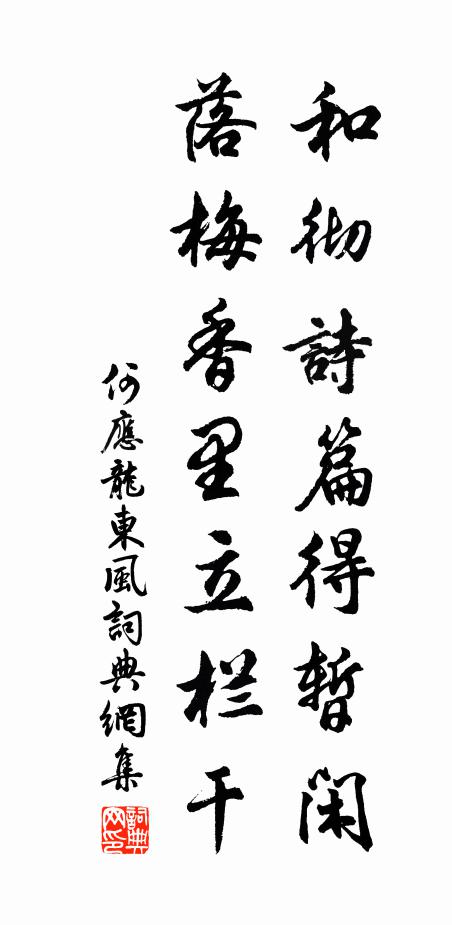 和彻詩篇得暫闲
落梅香里立栏干
何應龍東風詞典網集
詞典网印